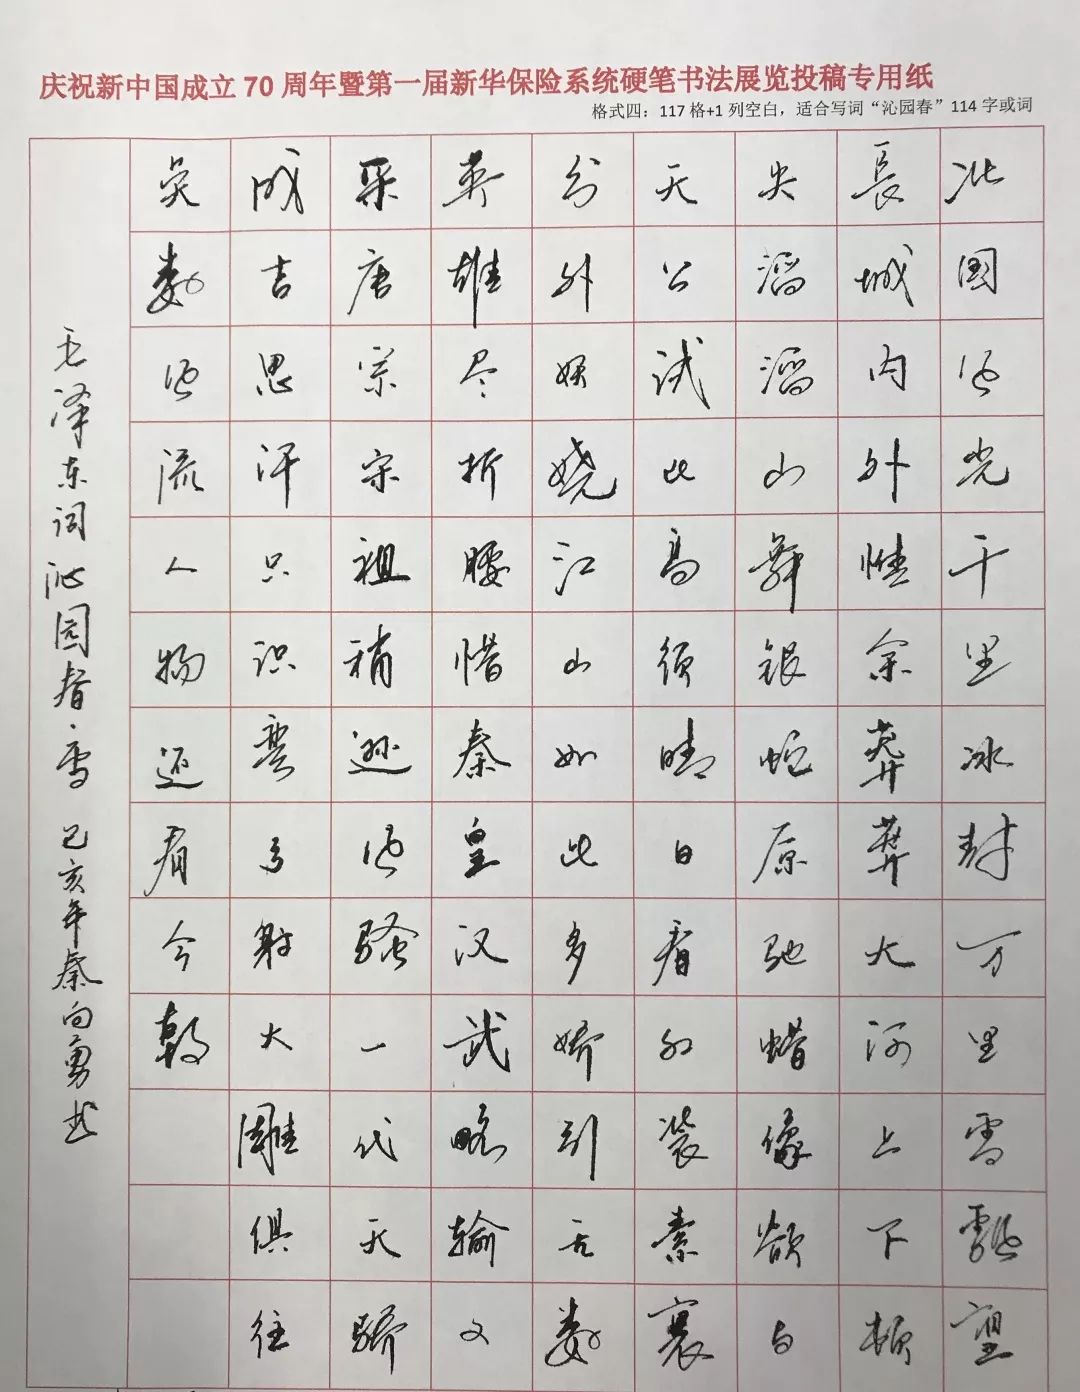 庆祝新中国成立70周年暨第一届新华保险系统硬笔书法展览投稿专用纸
格式四：117格+1列空白，适合写词“沁园春”114字或词
北国风光千里冰封万里雪飘望
長城内外惟余莽莽大河上下顿
失滔滔山舞银蛇原驰蜡像欲与
天公试比高须晴日看红装素裹
分外妖娆江山如此多娇引无数
英雄尽折腰惜秦皇汉武略输文
采唐宗宋祖稍逊风骚一代天骄
成吉思汗只识弯弓射大雕俱往
矣数风流人物还看今朝
毛泽东词沁园春·雪 己亥年秦向勇书